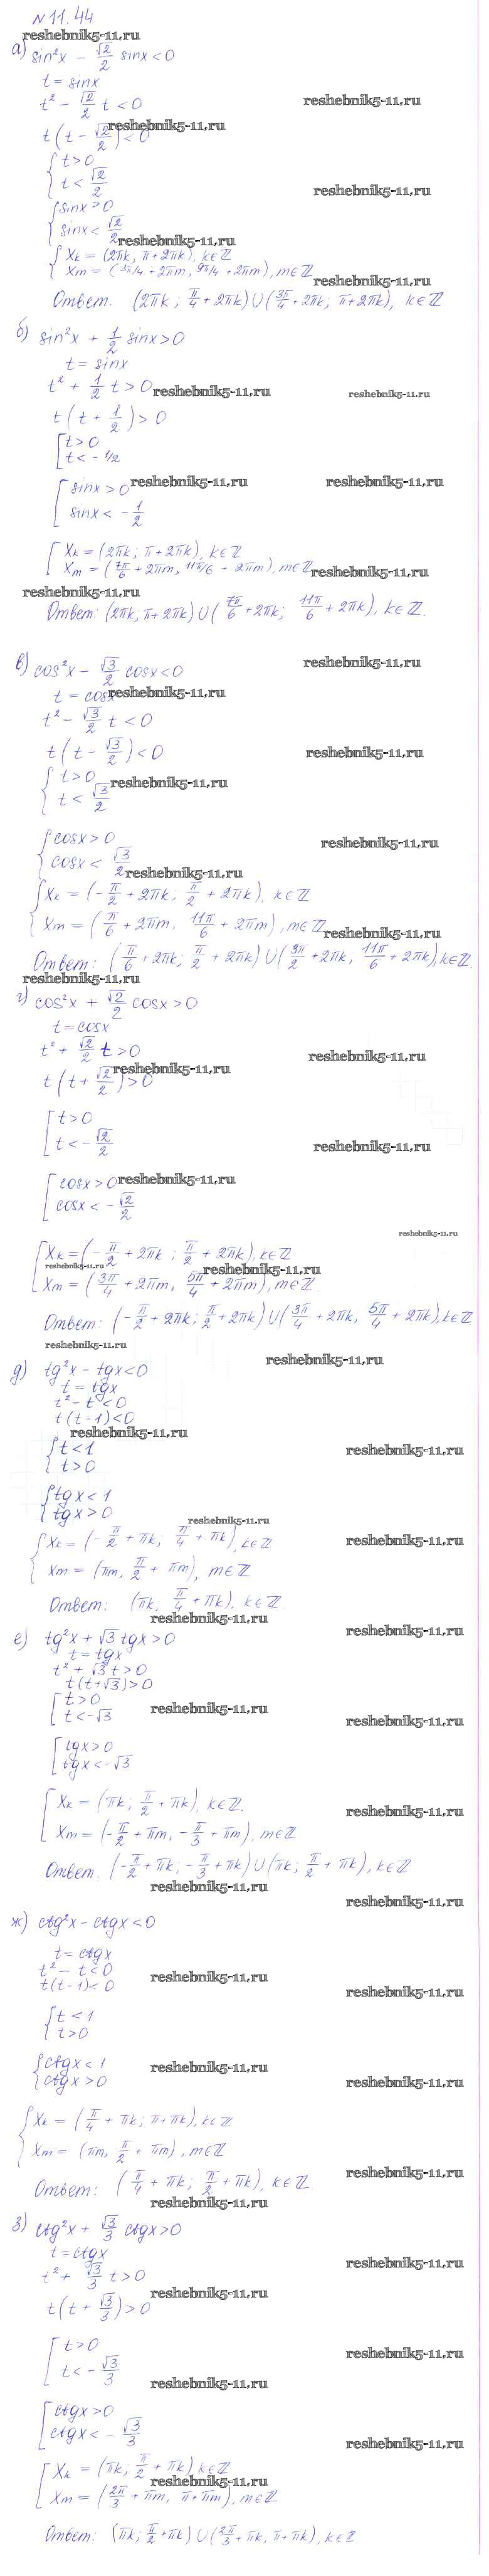 №11.44
reshebnik5-11,ru
а) sin²x − √2/2 sinx < 0
t = sinx
t² − √2/2 t < 0
reshebnik5-11,ru
t(t − √2/2) < 0
reshebnik5-11,ru
{ t > 0
t < √2/2
reshebnik5-11,ru
{ sinx > 0
sinx < √2/2
reshebnik5-11,ru
{ Xk = (2πk, π+2πk), k∈ℤ
Xm = (3π/4 + 2πm, 9π/4 + 2πm), m∈ℤ
reshebnik5-11,ru
Ответ. (2πk; π/4 + 2πk) ∪ (3π/4 + 2πk; π+2πk), k∈ℤ
б) sin²x + 1/2 sinx > 0
t = sinx
t² + 1/2 t > 0
reshebnik5-11,ru reshebnik5-11.ru
t(t + 1/2) > 0
[ t > 0
t < −1/2
reshebnik5-11,ru reshebnik5-11,ru
[ sinx > 0
sinx < −1/2
[ Xk = (2πk; π+2πk), k∈ℤ
Xm = (7π/6 + 2πm, 11π/6 − 2πm), m∈ℤ
reshebnik5-11,ru
reshebnik5-11,ru
Ответ: (2πk; π+2πk) ∪ (7π/6 + 2πk; 11π/6 + 2πk), k∈ℤ.
в) cos²x − √3/2 cosx < 0
reshebnik5-11,ru
t = cosx
reshebnik5-11,ru
t² − √3/2 t < 0
t(t − √3/2) < 0
reshebnik5-11,ru
{ t > 0
t < √3/2
reshebnik5-11,ru
{ cosx > 0
cosx < √3/2
reshebnik5-11,ru
reshebnik5-11,ru
{ Xk = (−π/2 + 2πk; π/2 + 2πk), k∈ℤ
Xm = (π/6 + 2πm, 11π/6 + 2πm), m∈ℤ
reshebnik5-11,ru
Ответ: (π/6 + 2πk; π/2 + 2πk) ∪ (3π/2 + 2πk, 11π/6 + 2πk), k∈ℤ.
reshebnik5-11,ru
г) cos²x + √2/2 cosx > 0
t = cosx
t² + √2/2 t > 0
reshebnik5-11,ru
t(t + √2/2) > 0
reshebnik5-11,ru
[ t > 0
t < −√2/2
reshebnik5-11,ru
[ cosx > 0
reshebnik5-11,ru
cosx < −√2/2
reshebnik5-11.ru
[ Xk = (−π/2 + 2πk; π/2 + 2πk), k∈ℤ
reshebnik5-11.ru reshebnik5-11,ru
Xm = (3π/4 + 2πm, 5π/4 + 2πm), m∈ℤ
Ответ: (−π/2 + 2πk; π/2 + 2πk) ∪ (3π/4 + 2πk, 5π/4 + 2πk), k∈ℤ
reshebnik5-11.ru
reshebnik5-11,ru
д) tg²x − tgx < 0
t = tgx
t² − t < 0
t(t−1) < 0
reshebnik5-11,ru
{ t < 1
t > 0
reshebnik5-11,ru
{ tgx < 1
tgx > 0
reshebnik5-11.ru
{ Xk = (−π/2 + πk; π/4 + πk), k∈ℤ
reshebnik5-11,ru
Xm = (πm, π/2 + πm), m∈ℤ
Ответ: (πk; π/4 + πk), k∈ℤ.
reshebnik5-11,ru
reshebnik5-11,ru
е) tg²x + √3 tgx > 0
t = tgx
t² + √3 t > 0
t(t+√3) > 0
[ t > 0
t < −√3
reshebnik5-11,ru
reshebnik5-11,ru
[ tgx > 0
tgx < −√3
[ Xk = (πk; π/2 + πk), k∈ℤ.
reshebnik5-11,ru
Xm = (−π/2 + πm, −π/3 + πm), m∈ℤ
Ответ. (−π/2 + πk, −π/3 + πk) ∪ (πk; π/2 + πk), k∈ℤ
reshebnik5-11,ru
reshebnik5-11,ru
ж) ctg²x − ctgx < 0
t = ctgx
t² − t < 0
reshebnik5-11,ru
t(t−1) < 0
reshebnik5-11,ru
{ t < 1
t > 0
{ ctgx < 1
reshebnik5-11,ru
ctgx > 0
reshebnik5-11,ru
{ Xk = (π/4 + πk; π+πk), k∈ℤ
Xm = (πm, π/2 + πm), m∈ℤ
reshebnik5-11,ru
Ответ: (π/4 + πk; π/2 + πk), k∈ℤ.
reshebnik5-11,ru
з) ctg²x + √3/3 ctgx > 0
t = ctgx
reshebnik5-11,ru
t² + √3/3 t > 0
reshebnik5-11,ru
t(t + √3/3) > 0
[ t > 0
reshebnik5-11,ru
t < −√3/3
reshebnik5-11,ru
[ ctgx > 0
ctgx < −√3/3
reshebnik5-11,ru
[ Xk = (πk; π/2 + πk) k∈ℤ
reshebnik5-11,ru
Xm = (2π/3 + πm, π+πm), m∈ℤ
Ответ: (πk; π/2 + πk) ∪ (2π/3 + πk, π+πk), k∈ℤ